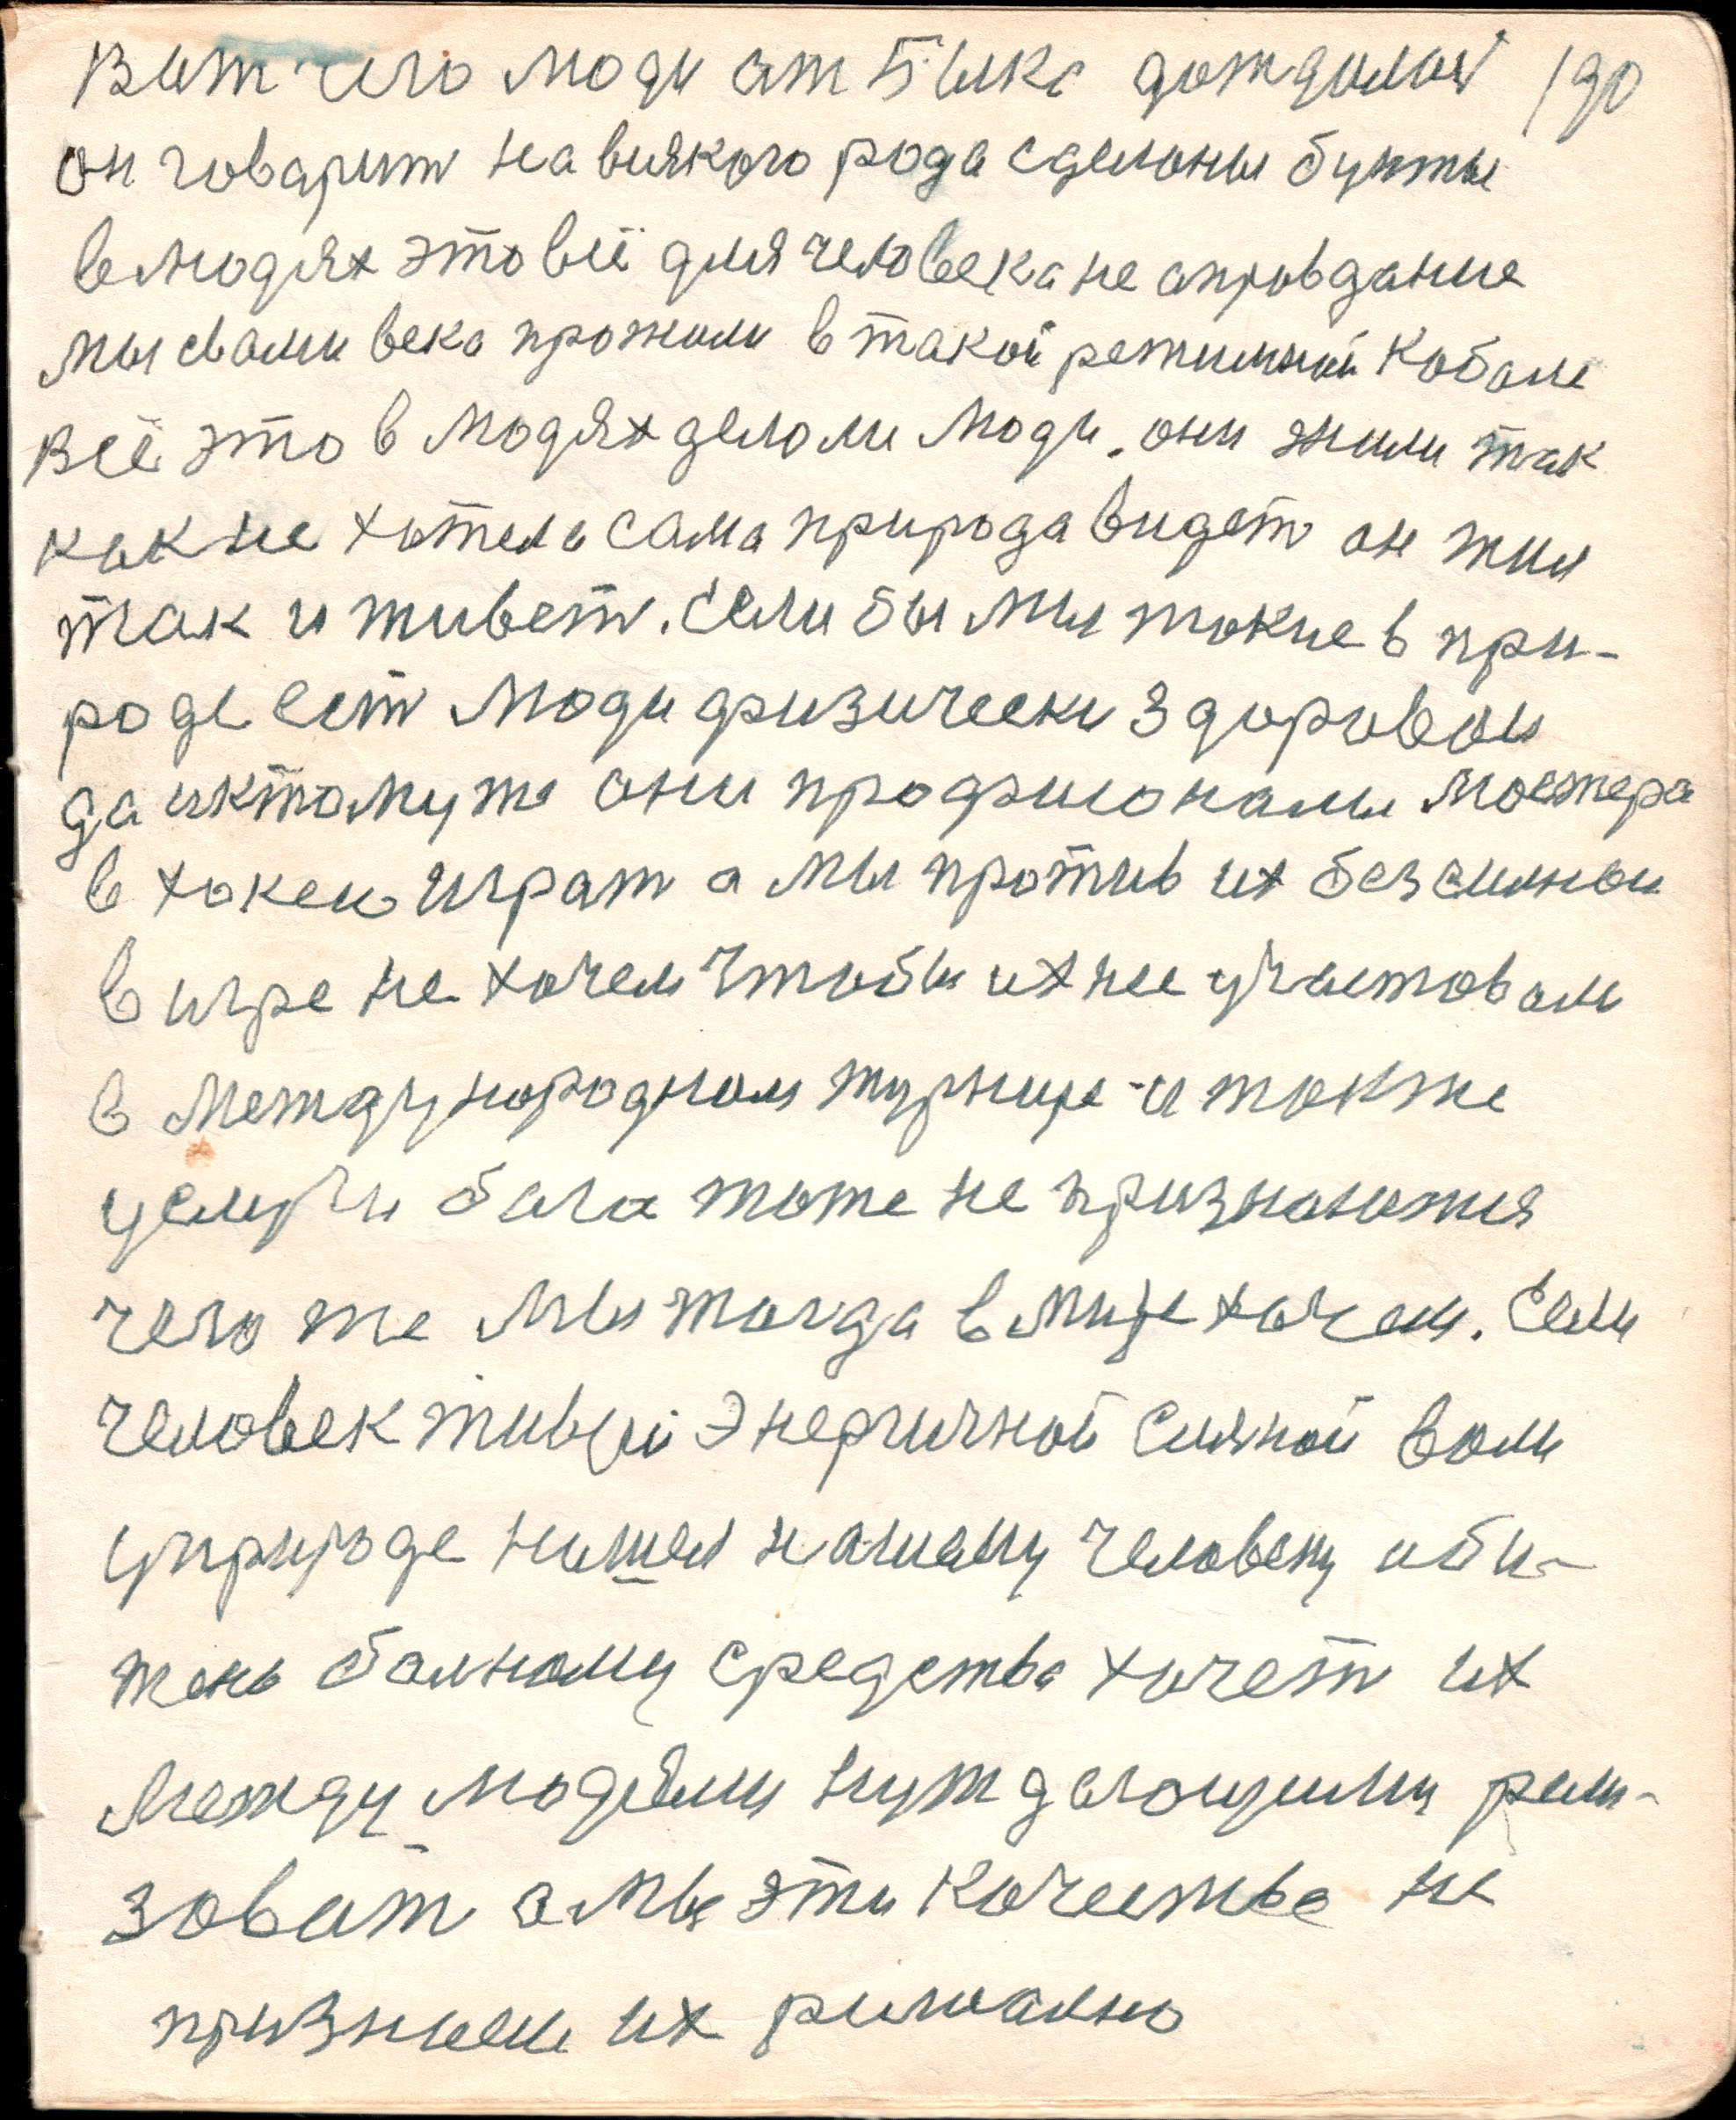 Вот чего люди от Быка дождалися 190
он говарит на всякого рода сделоны бунты
в людях это всё для человека не аправдание
мы свами века прожили в такой режимной кабале
всё это в людях делоли люди. они жили так
как не хотела сама природа видет он жил
так и живет. Если бы мы токие в при-
роде ест люди физически здоровои
да ктому же они профисионалы мостера
в хокеи играт а мы против их безсилнои
в игре не хочем чтобы ихнее участовали
в международном турнире и также
целители бога тоже не признаются
чего же мы тогда в мире хочем. Если
человек живой энергичной силной воли
уприроде нашел нашему человеку оби-
жено болному средства хочет их
между людями нуждающими рели-
зоват а мы эти качества не
признаем их риально